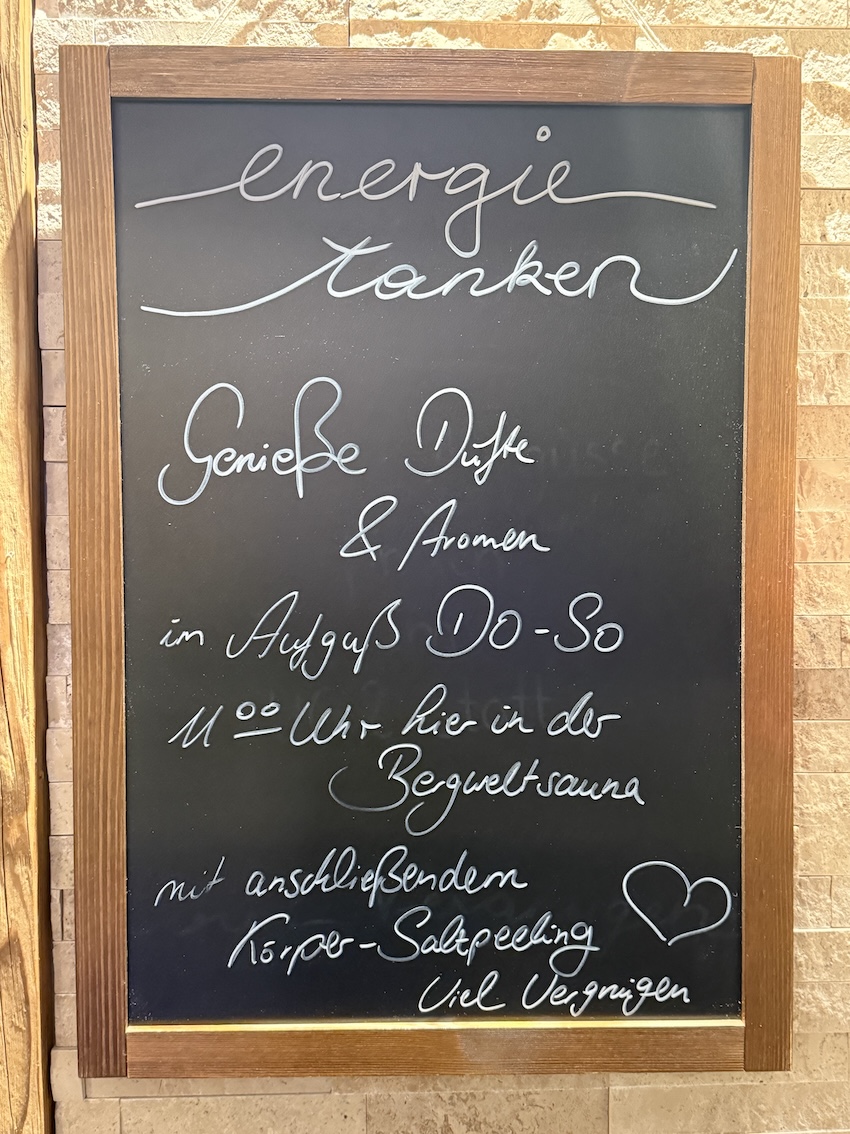 energie
tanken
Genieße Düfte
& Aromen
im Aufguß DO-So
11⁰⁰ Uhr hier in der
Bergweltsauna
mit anschließendem
Körper-Salzpeeling
Viel Vergnügen